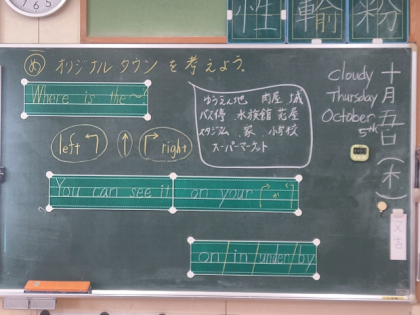 性 輸 粉
め オリジナルタウンを考えよう。
Where is the～?
left ↰ ↑ ↱ right
ゆうえん地 肉屋 城
バス停 水族館 花屋
スタジアム 家 小学校
スーパーマーケット
You can see it on your
on/in/under/by
Cloudy
Thursday
October
5th
十月五日(木)